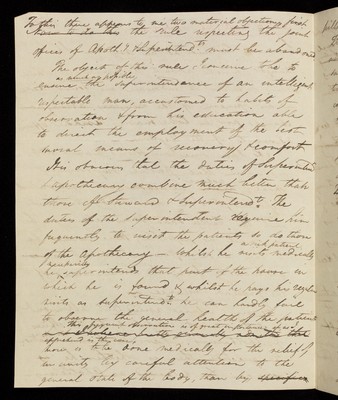 To this there appears to me two material objections first
the rule respecting the joint
office of Apoth.y & Superintend.t must be abandoned
The object of this rule I conceive to be to
as much as possible
ensure the superintendence of an intelligent
respectable man, accustomed to habits of
observation & from his education able
to direct the employment of the best
moral means of recovery & comfort
It is obvious that the duties of Superintend.t
& apothecary combine much better than
those of Steward & Superintend.t. The
duties of the Superintendent require him
frequently to visit the patients so do those
of the Apothecary – Whilst he visits medically
a sick patient
he superintends that part of the house in
which he is found & whilst he pays his regular
visits as Superintend.t he can hardly fail
to observe the general health of the patients
This frequent observation is of great importance as
more is to be done medically for the relief of
insanity by careful attention to the
general state of the body, than by